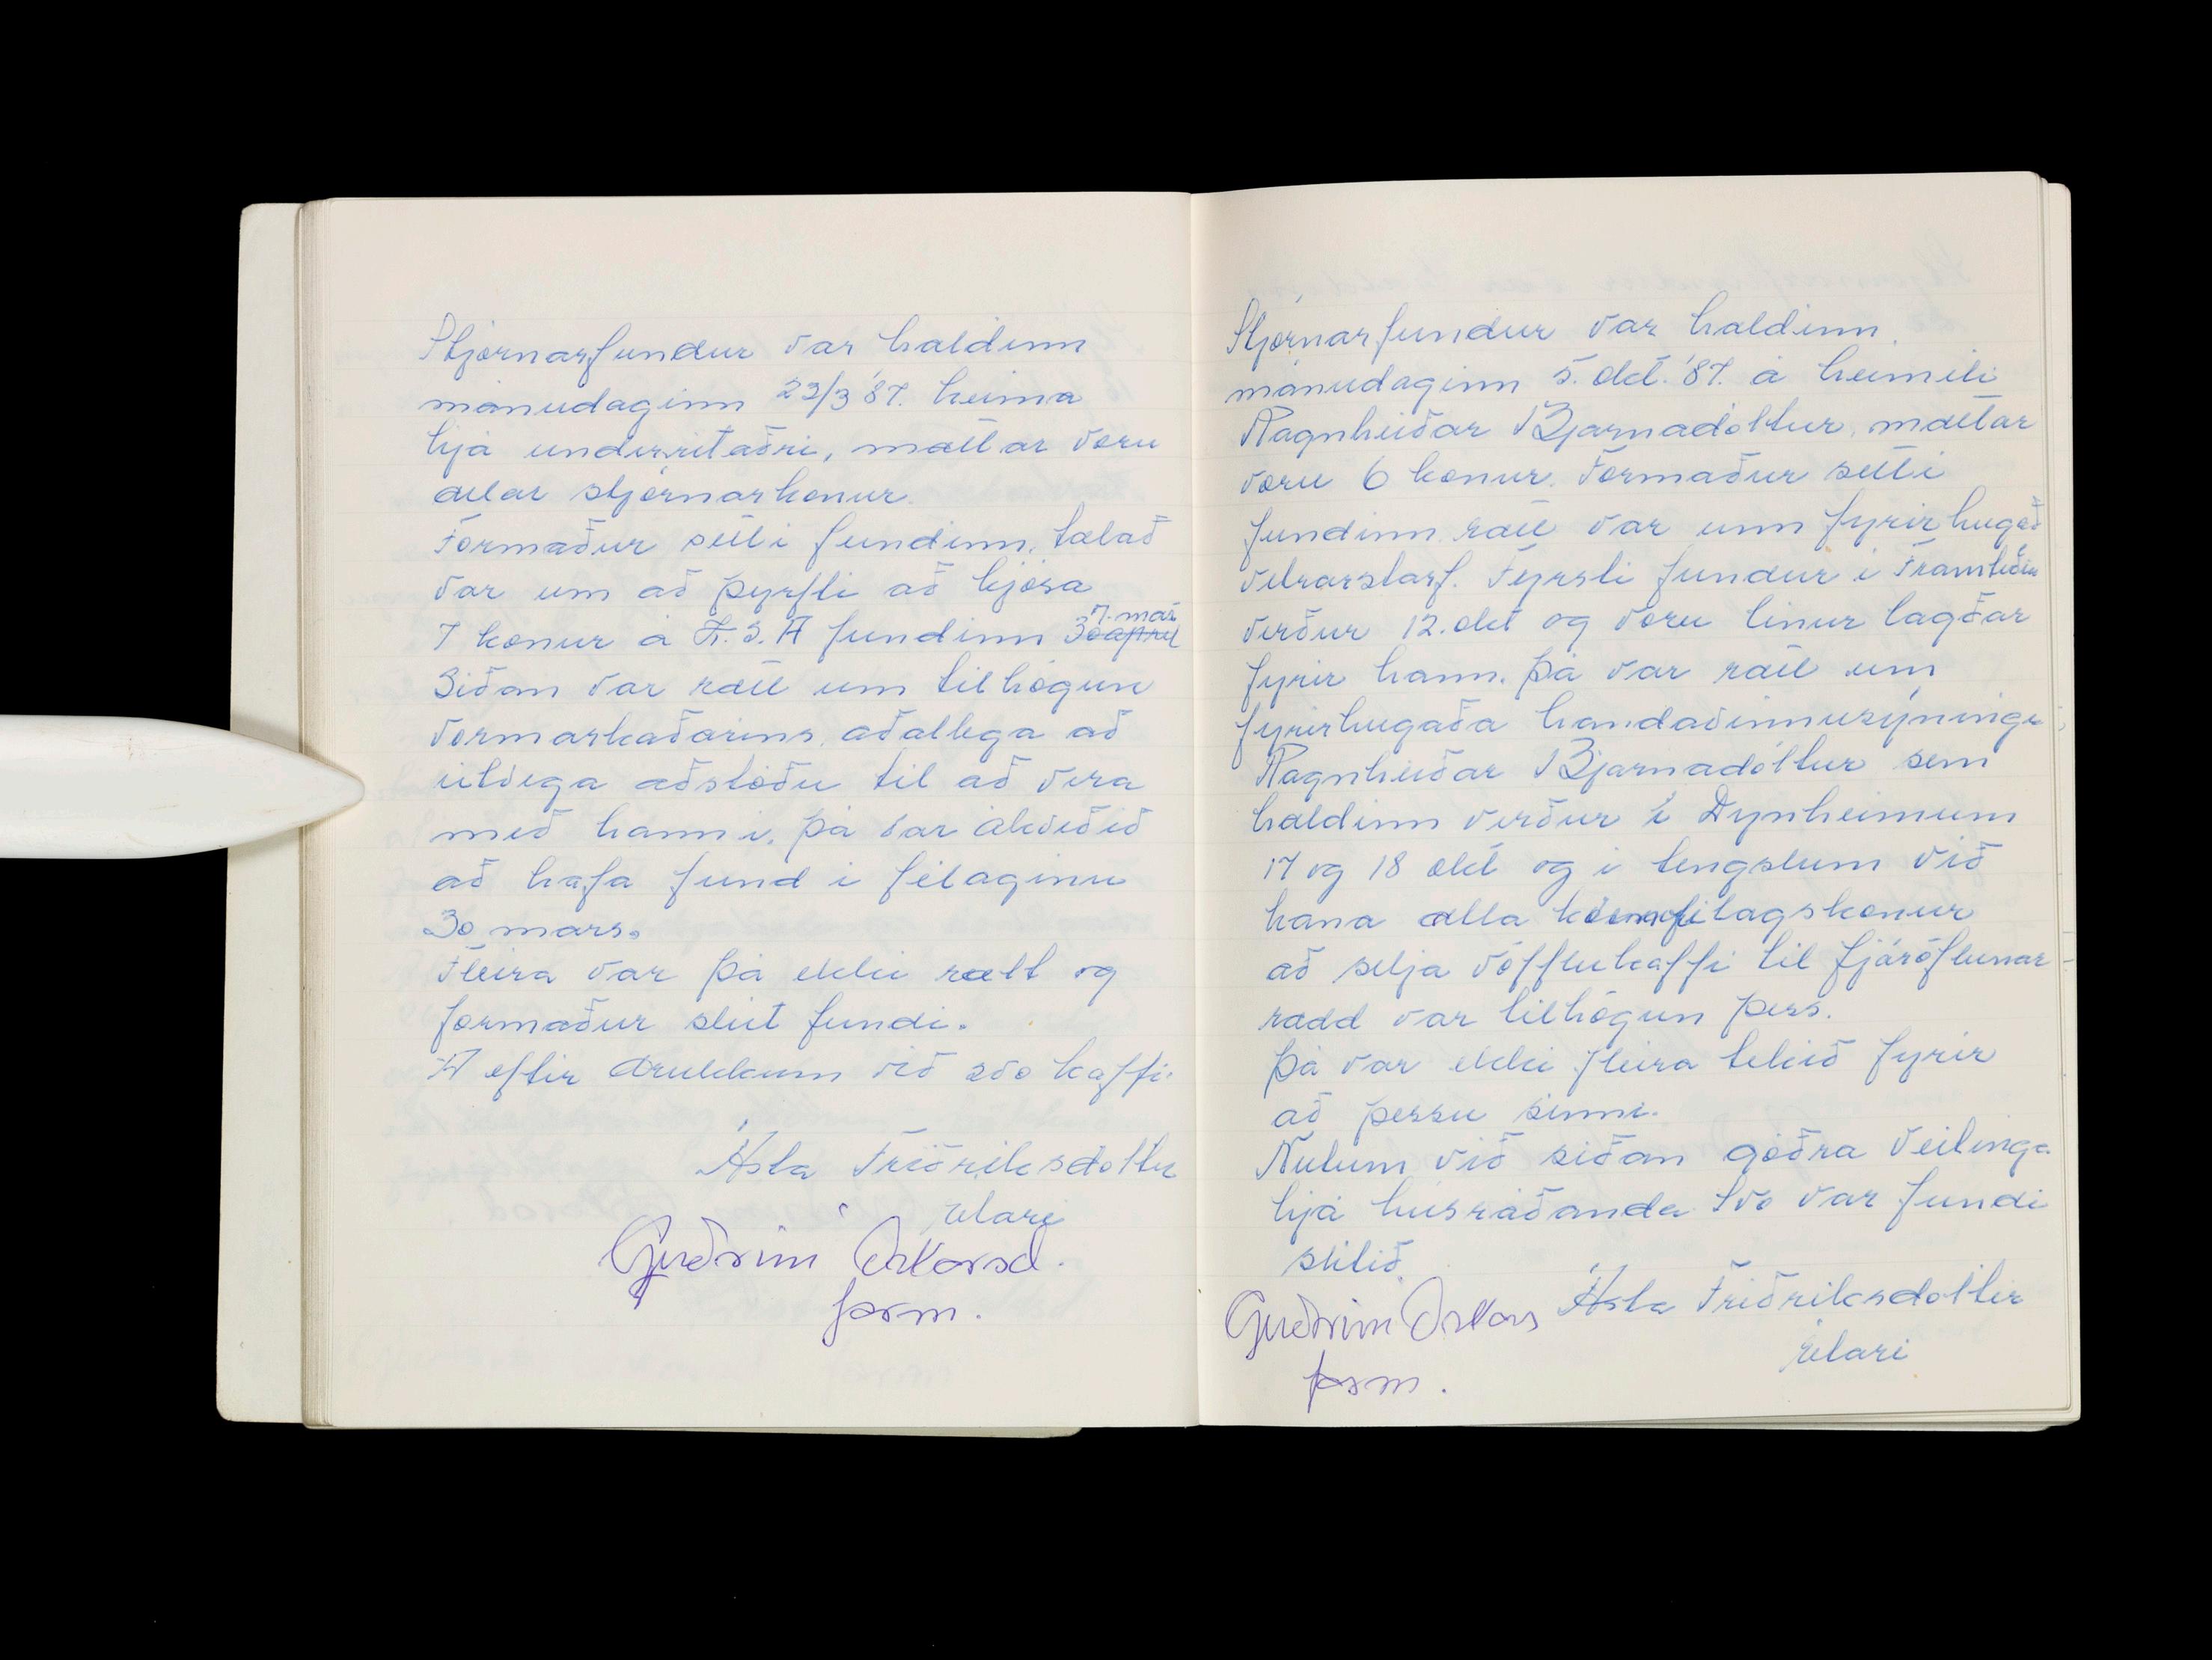 Stjórnarfundur var haldinn
mánudaginn 23/3 '87. heima
hjá undirritaðri, mættar voru
allar stjórnarkonur.
Formaður setti fundinn, talað
var um að þyrfti að kjósa
7. maí
7 konur á K.S.A fundinn 30 apríl
Síðan var rætt um tilhögun
vormarkaðarins, aðallega að
útvega aðstöðu til að vera
með hann í. Þá var ákveðið
að hafa fund í félaginu
30 mars.
Fleira var þá ekki rætt og
formaður sleit fundi.
Á eftir drukkum við svo kaffi.
Ásta Friðriksdóttir
ritari
Guðrún Óskarsd.
form.
Stjórnarfundur var haldinn
mánudaginn 5. okt. '87. á heimili
Ragnheiðar Bjarnadóttur, mættar
voru 6 konur. Formaður setti
fundinn rætt var um fyrirhugað
vetrarstarf. Fyrsti fundur í Framtíðin
verður 12. okt og voru línur lagðar
fyrir hann. Þá var rætt um
fyrirhugaða handavinnusýningu
Ragnheiðar Bjarnadóttur sem
haldinn verður í Dynheimum
17 og 18 okt og í tengslum við
hana ætla félagskonur
að selja vöfflukaffi til fjáröflunar
rædd var tilhögun þess.
Þá var ekki fleira tekið fyrir
að þessu sinni.
Nutum við síðan góðra veitinga
hjá húsráðanda svo var fundi
slitið.
Ásta Friðriksdóttir
ritari
Guðrún Óskars
form.